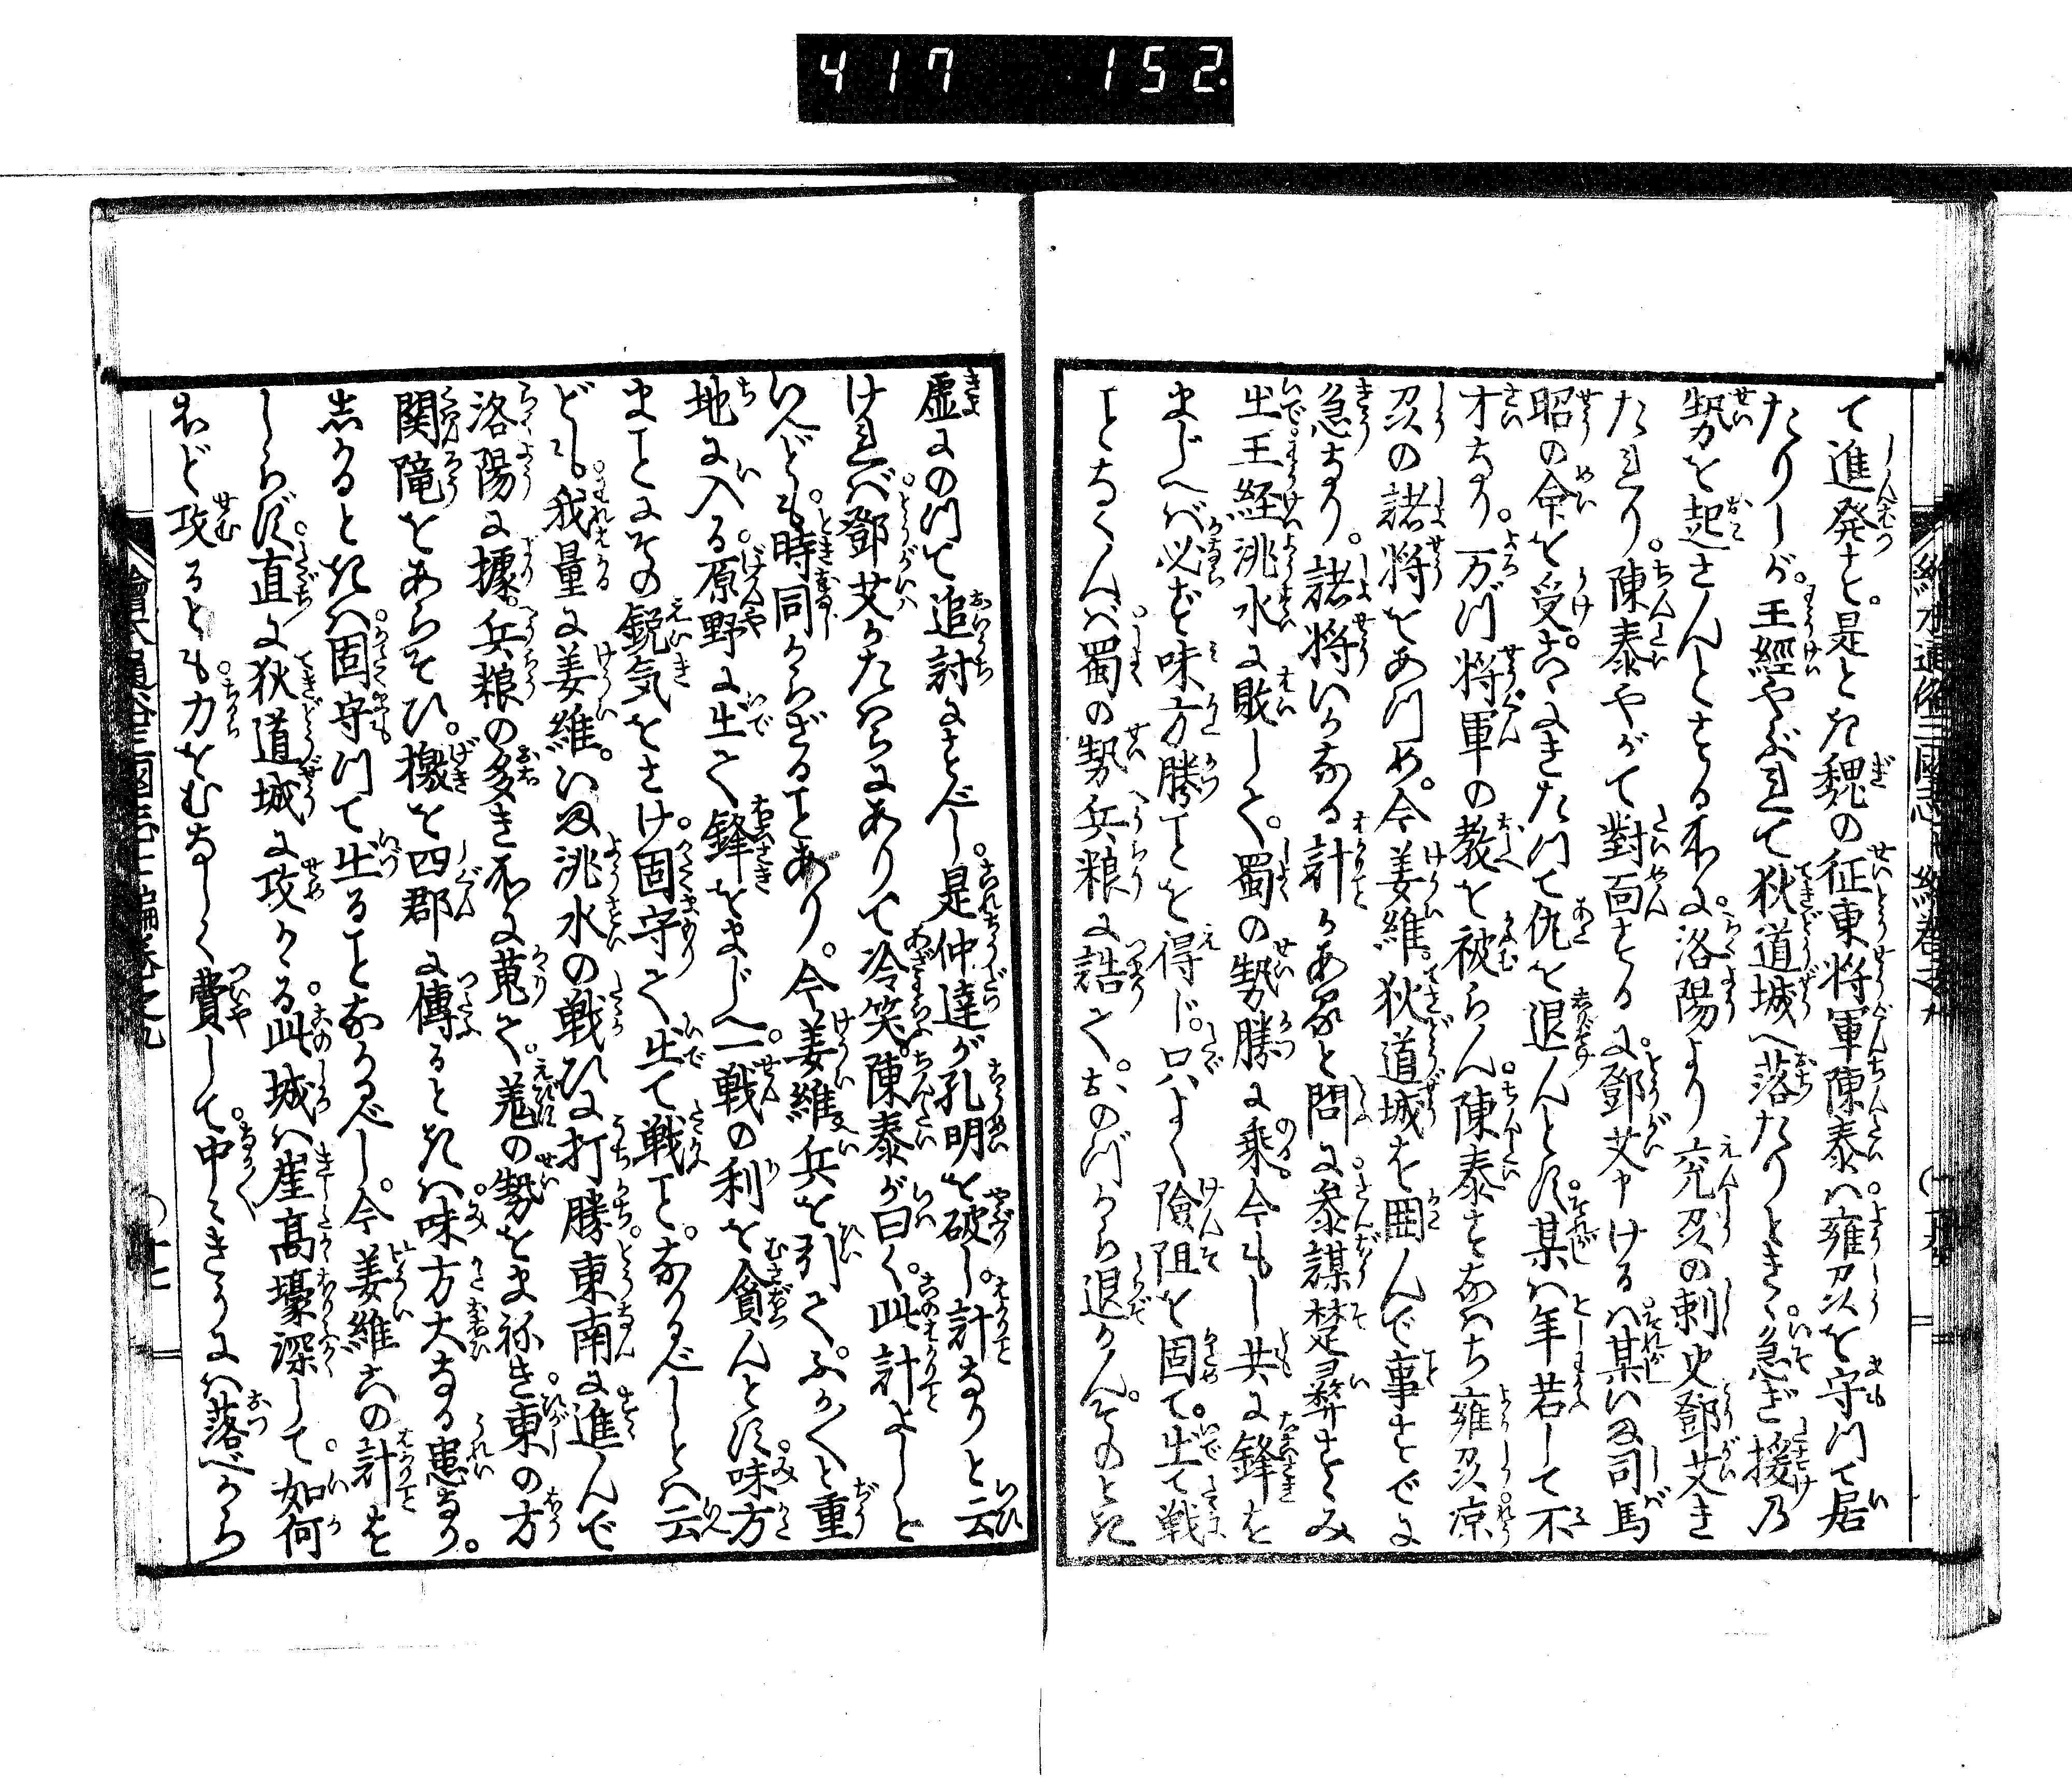 417 152.
て進発す。是とき魏の征東将軍陳泰ハ。雍州を守つて居
たりしが。王經やぶれて狄道城へ落たりときゝ。急ぎ援乃
勢を起さんとする所に。洛陽より兗州の刺史鄧艾き
たれり。陳泰やがて對面するに。鄧艾申けるハ。某いま司馬
昭の命を受。こゝにきたつて仇を退んとす。某ハ年若して不
才なり。万づ将軍の教を被らん。陳泰すなハち雍州凉
州の諸将をあつめ。今姜維。狄道城を囲んで事すでに
急なり。諸将いかなる計かあると問に。参謀楚彜すゝみ
出。王経洮水に敗して。蜀の勢勝に乗。今もし共に鋒を
まじへバ。必ず味方勝ことを得じ。只よく險阻を固て。出て戦
ことなくんバ。蜀の勢兵粮に詰て。おのづから退かん。そのとき
虚にのつて追討にすべし。是仲達が孔明を破し。計なりと云
けれバ。鄧艾かたハらにありて冷笑。陳泰が曰く。此計よしと
いへども。時同からざることあり。今姜維兵を引て。ふかく重
地に入る。原野に出て鋒をまじへ。一戦の利を貪んとす。味方
まことにその鋭気をさけ。固守て出て戦こと。なかるべしとハ云
ども。我量に姜維。いま洮水の戦ひに打勝。東南に進んで
洛陽に據。兵粮の多き所に蒐て。羗の勢をまねき。東の方
関隴をあらそひ。檄を四郡に傳るときハ。味方大なる患なり。
しかるときハ。固守つて出ることなかるべし。今姜維この計を
しらず。直に狄道城に攻かゝる。此城ハ崖高壕深して。如何
ほど攻るとも。力をむなしく費して。中々きうにハ落べから